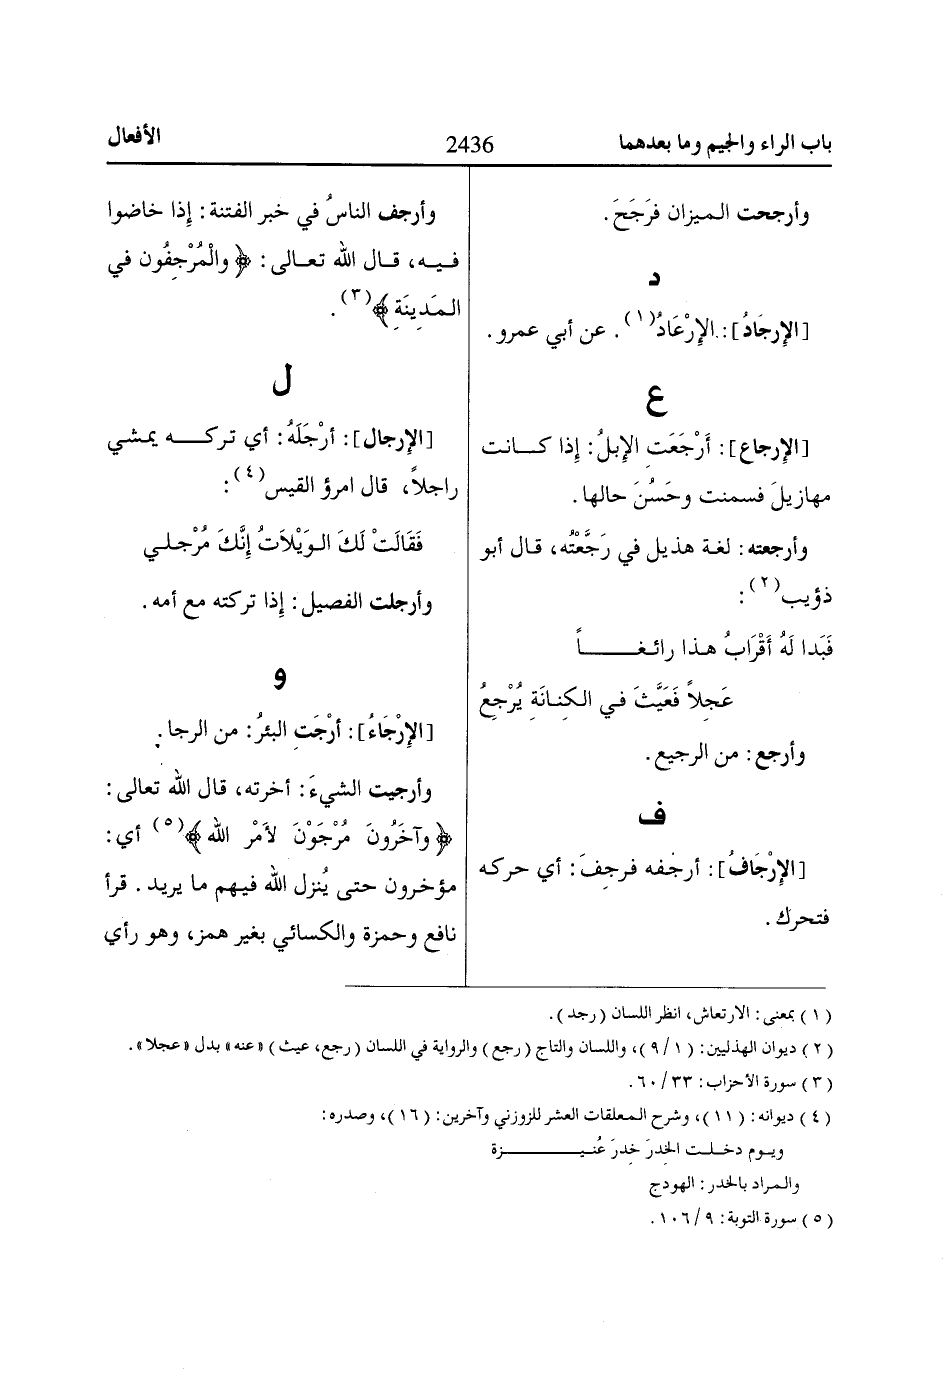 باب الراء والجيم وما بعدهما
2436
الأفعال
وأرجحت الميزان فرَجَحَ.
د
[الإرجَادُ]: الإرْعَادُ(١). عن أبي عمرو.
ع
[الإرجاع]: أَرْجَعَتِ الإبلُ: إذا كانت
مهازيلَ فسمنت وحَسُنَ حالها.
وأرجعته: لغة هذيل في رَجَّعْتُه، قال أبو
ذؤيب(٢):
فَبَدا لَهُ أقْرَابُ هذا رائغاً
عَجِلاً فَعَيَّثَ في الكِنانَةِ يُرْجِعُ
وأرجع: من الرجيع.
ف
[الإرْجَافُ]: أرجفه فرجفَ: أي حركه
فتحرك.
وأرجف الناسُ في خبر الفتنة: إذا خاضوا
فيه، قال الله تعالى: ﴿والْمُرْجِفُون في
المَدِينَةِ﴾(٣).
ل
[الإرجال]: أَرْجَلَهُ: أي تركه يمشي
راجلاً، قال امرؤ القيس(٤):
فَقَالَتْ لَكَ الوَيْلَاتُ إنَّكَ مُرْجلي
وأرجلت الفصيل: إذا تركته مع أمه.
و
[الإرْجَاءُ]: أرْجَتِ البئرُ: من الرجا.
وأرجيت الشيءَ: أخرته، قال الله تعالى:
﴿وآخَرُونَ مُرْجَوْنَ لأَمْرِ الله﴾(٥) أي:
مؤخرون حتى يُنزل الله فيهم ما يريد. قرأ
نافع وحمزة والكسائي بغير همز، وهو رأي
(١) بمعنى: الارتعاش، انظر اللسان (رجد).
(٢) ديوان الهذليين: (٩/١)، واللسان والتاج (رجع) والرواية في اللسان (رجع، عيث) «عنه» بدل «عجلا».
(٣) سورة الأحزاب: ٦٠/٣٣.
(٤) ديوانه: (١١)، وشرح المعلقات العشر للزوزني وآخرين: (١٦)، وصدره:
ويوم دخلت الخِدرَ خِدرَ عُنيزة
والمراد بالخدر: الهودج
(٥) سورة التوبة: ١٠٦/٩.